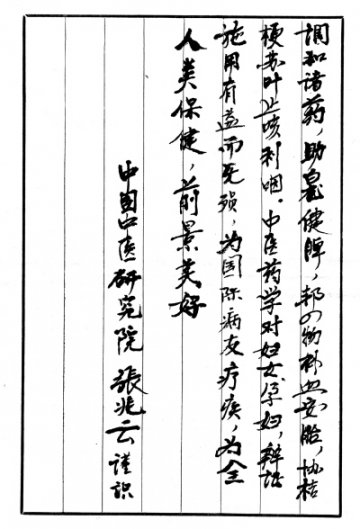 调和诸药，助皂健脾，邦四物补血安胎，协桔
梗苏叶止咳利咽。中医药学对妇女孕妇，辩证
施用有益而无损，为国际病友疗疾，为全
人类保健，前景美好
中国中医研究院 張兆云 谨识